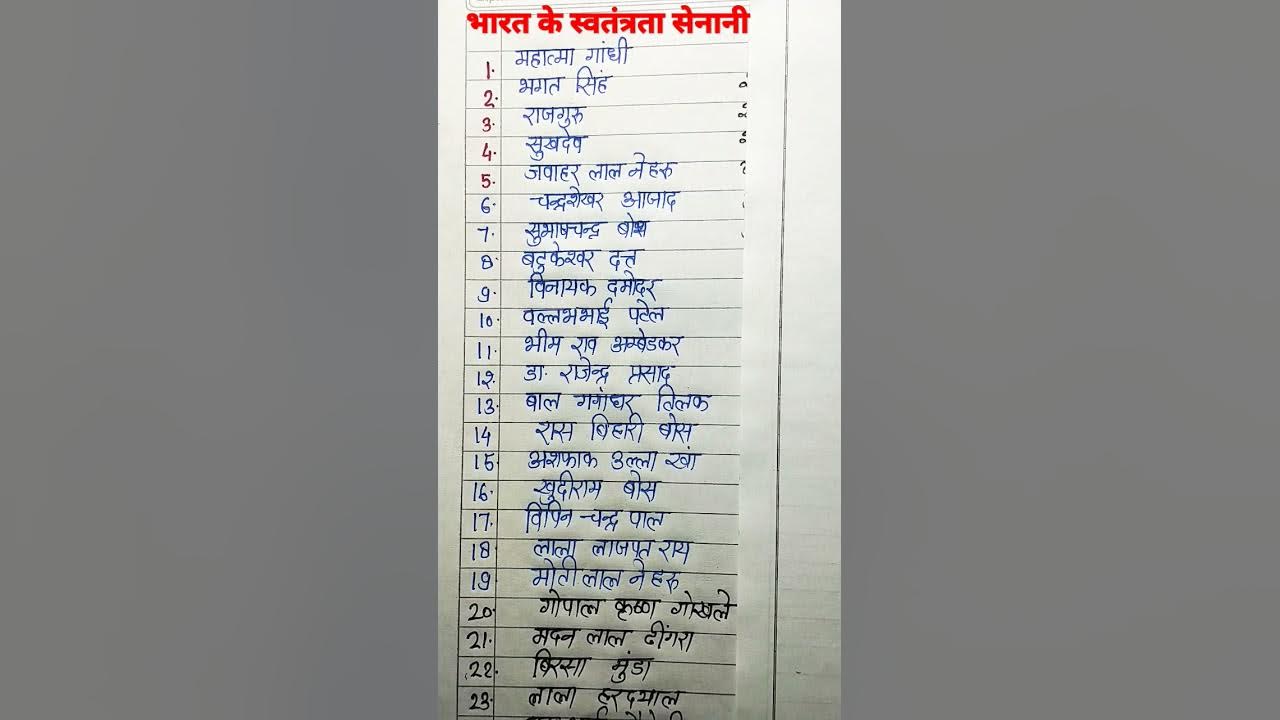 भारत के स्वतंत्रता सेनानी
1. महात्मा गांधी
2. भगत सिंह
3. राजगुरु
4. सुखदेव
5. जवाहर लाल नेहरु
6. चन्द्रशेखर आजाद
7. सुभाषचन्द्र बोस
8. बटुकेश्वर दत्त
9. विनायक दमोदर
10. वल्लभभाई पटेल
11. भीम राव अम्बेडकर
12. डा. राजेन्द्र प्रसाद
13. बाल गंगाधर तिलक
14 रास बिहारी बोस
15. अशफाक उल्ला खां
16. खुदीराम बोस
17. विपिन चन्द्र पाल
18 लाला लाजपत राय
19 मोती लाल नेहरु
20. गोपाल कृष्ण गोखले
21. मदन लाल ढींगरा
22. बिरसा मुंडा
23. लाला हरदयाल